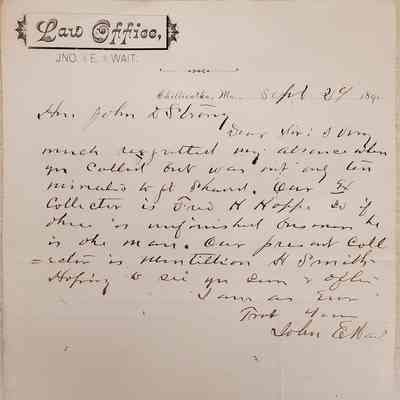 Law Office,
JNO. E. WAIT.
Chillicothe, Mo. Sept 29 189
Hon John D Strong
Dear Sir: I very
much regretted my absence when
you called but was out only ten
minutes to get shaved. Our Ex
Collector is Fred K Hoppe so if
there is unfinished business he
is the man. Our present Coll
=ector is H Smith
Hoping to see you soon & often
I am as Ever
Yours
John E Wait